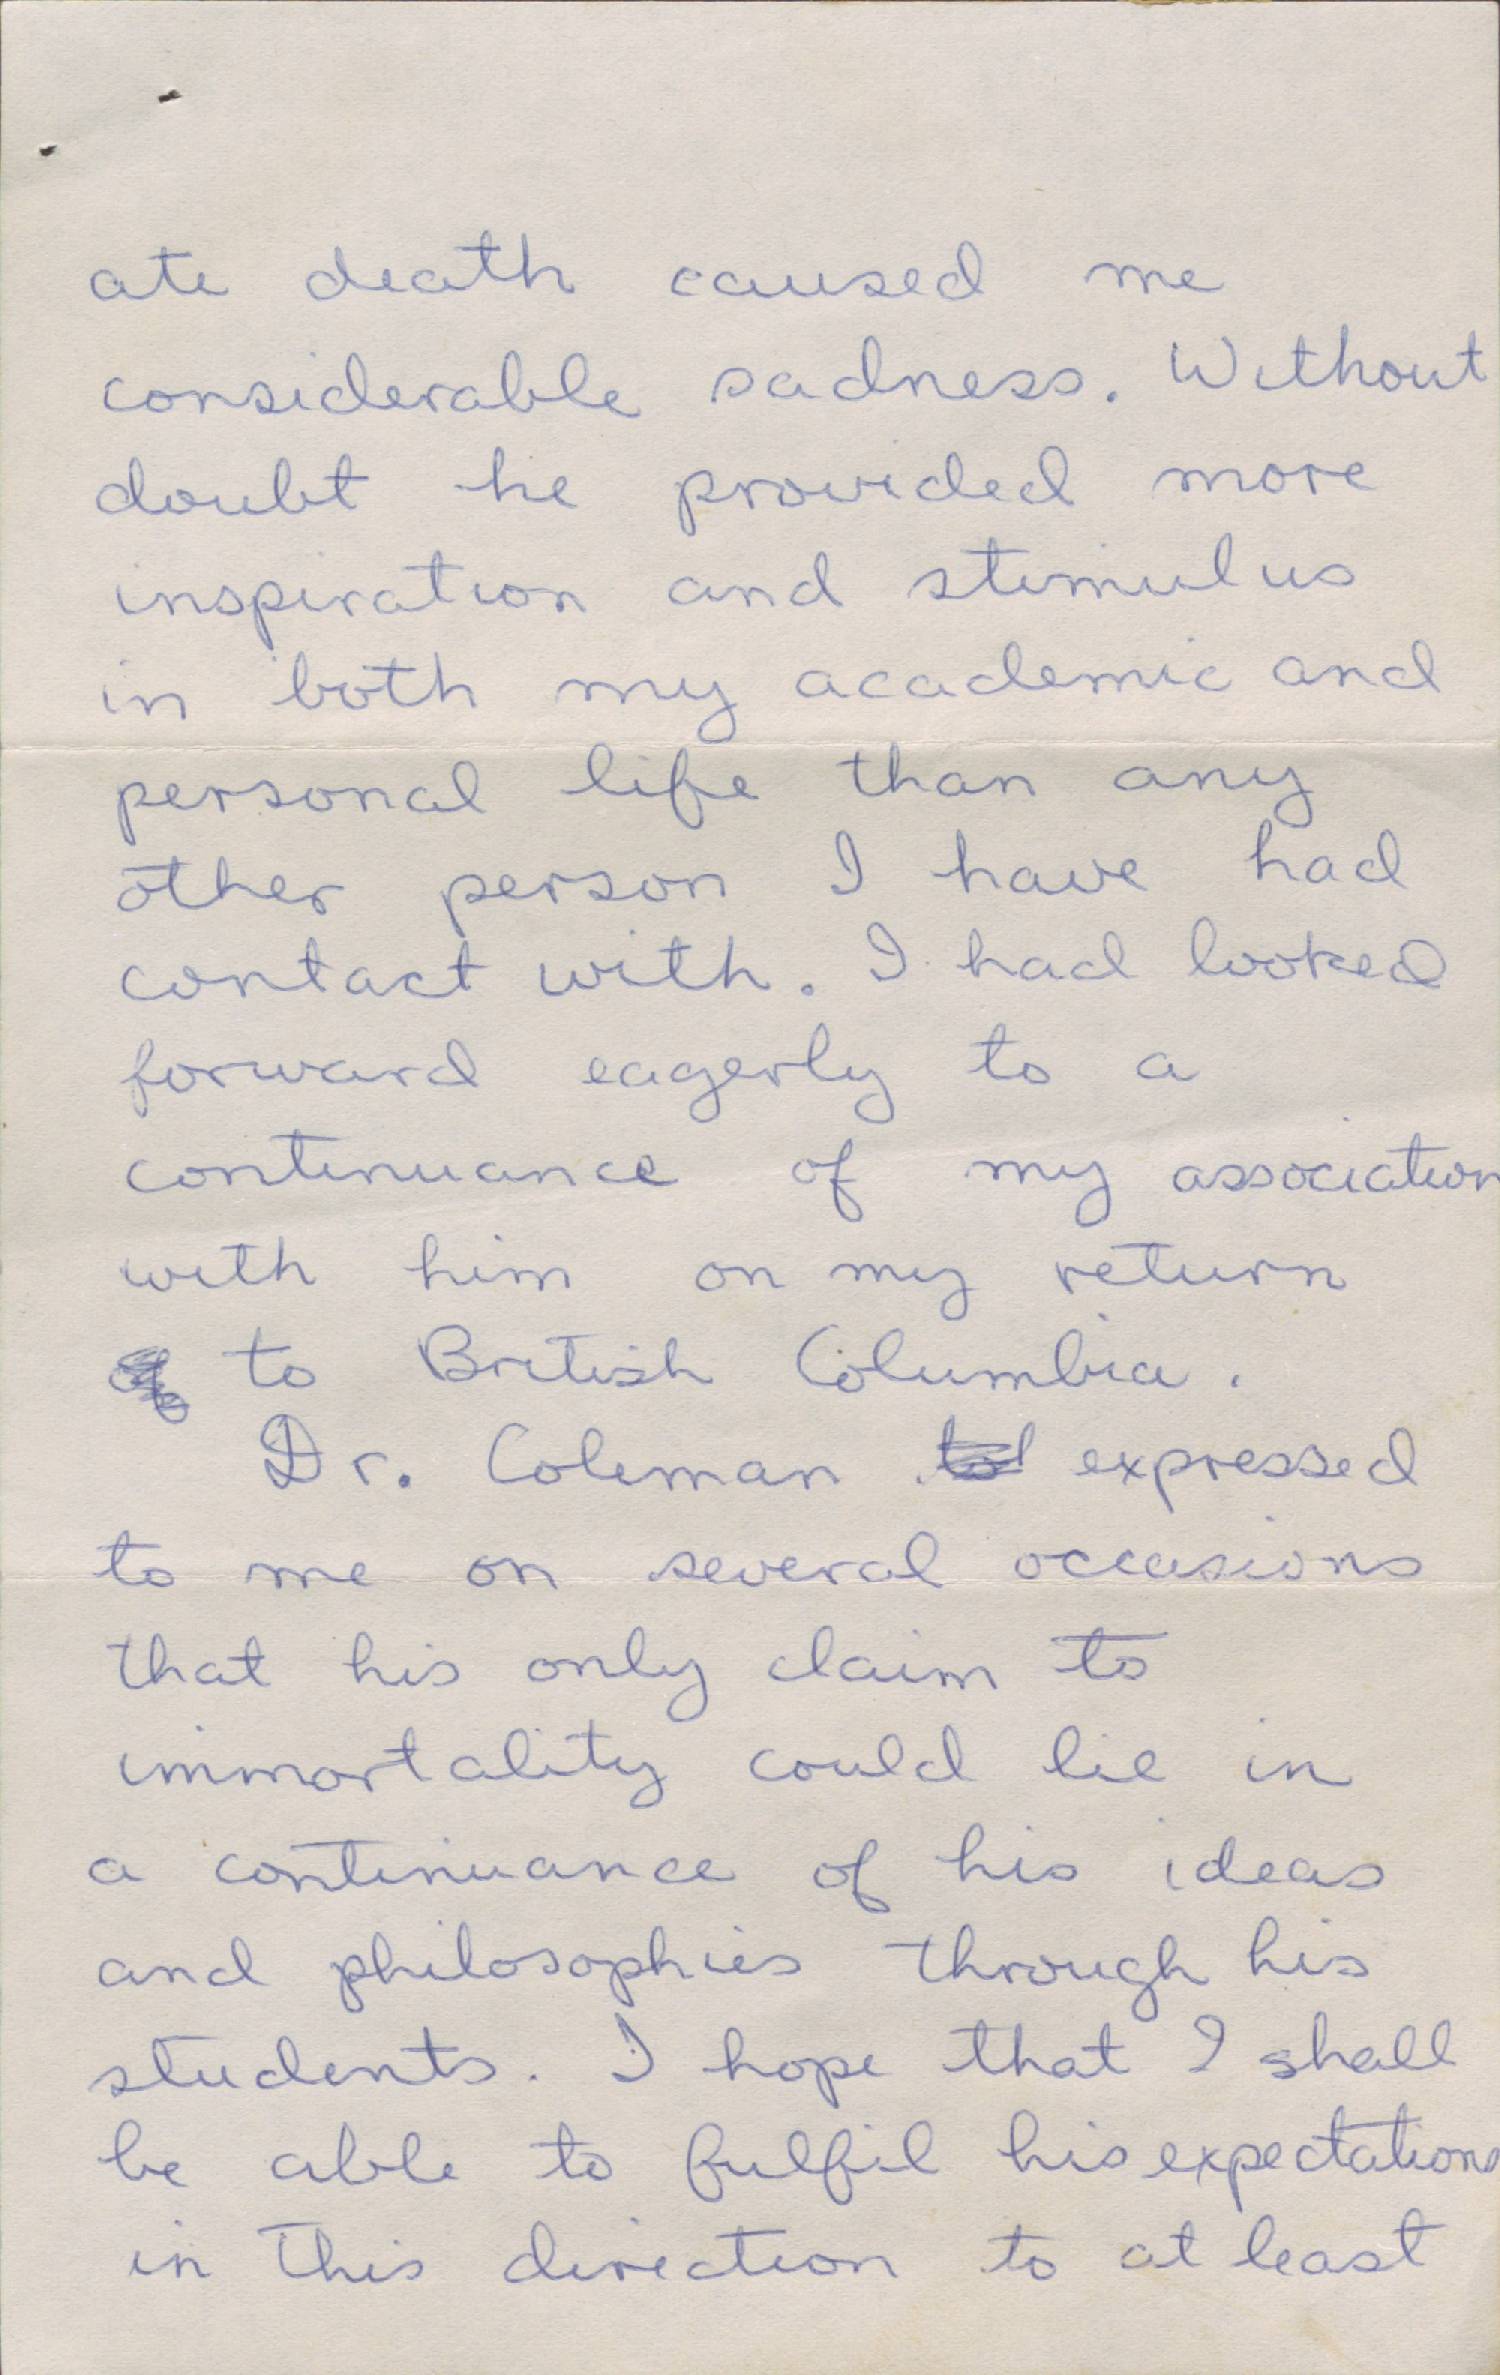 ate death caused me
considerable sadness. Without
doubt he provided more
inspiration and stimulus
in both my academic and
personal life than any
other person I have had
contact with. I had looked
forward eagerly to a
continuance of my association
with him on my return
to British Columbia.
Dr. Coleman expressed
to me on several occasions
that his only claim to
immortality could lie in
a continuance of his ideas
and philosophies through his
students. I hope that I shall
be able to fulfil his expectations
in this direction to at least